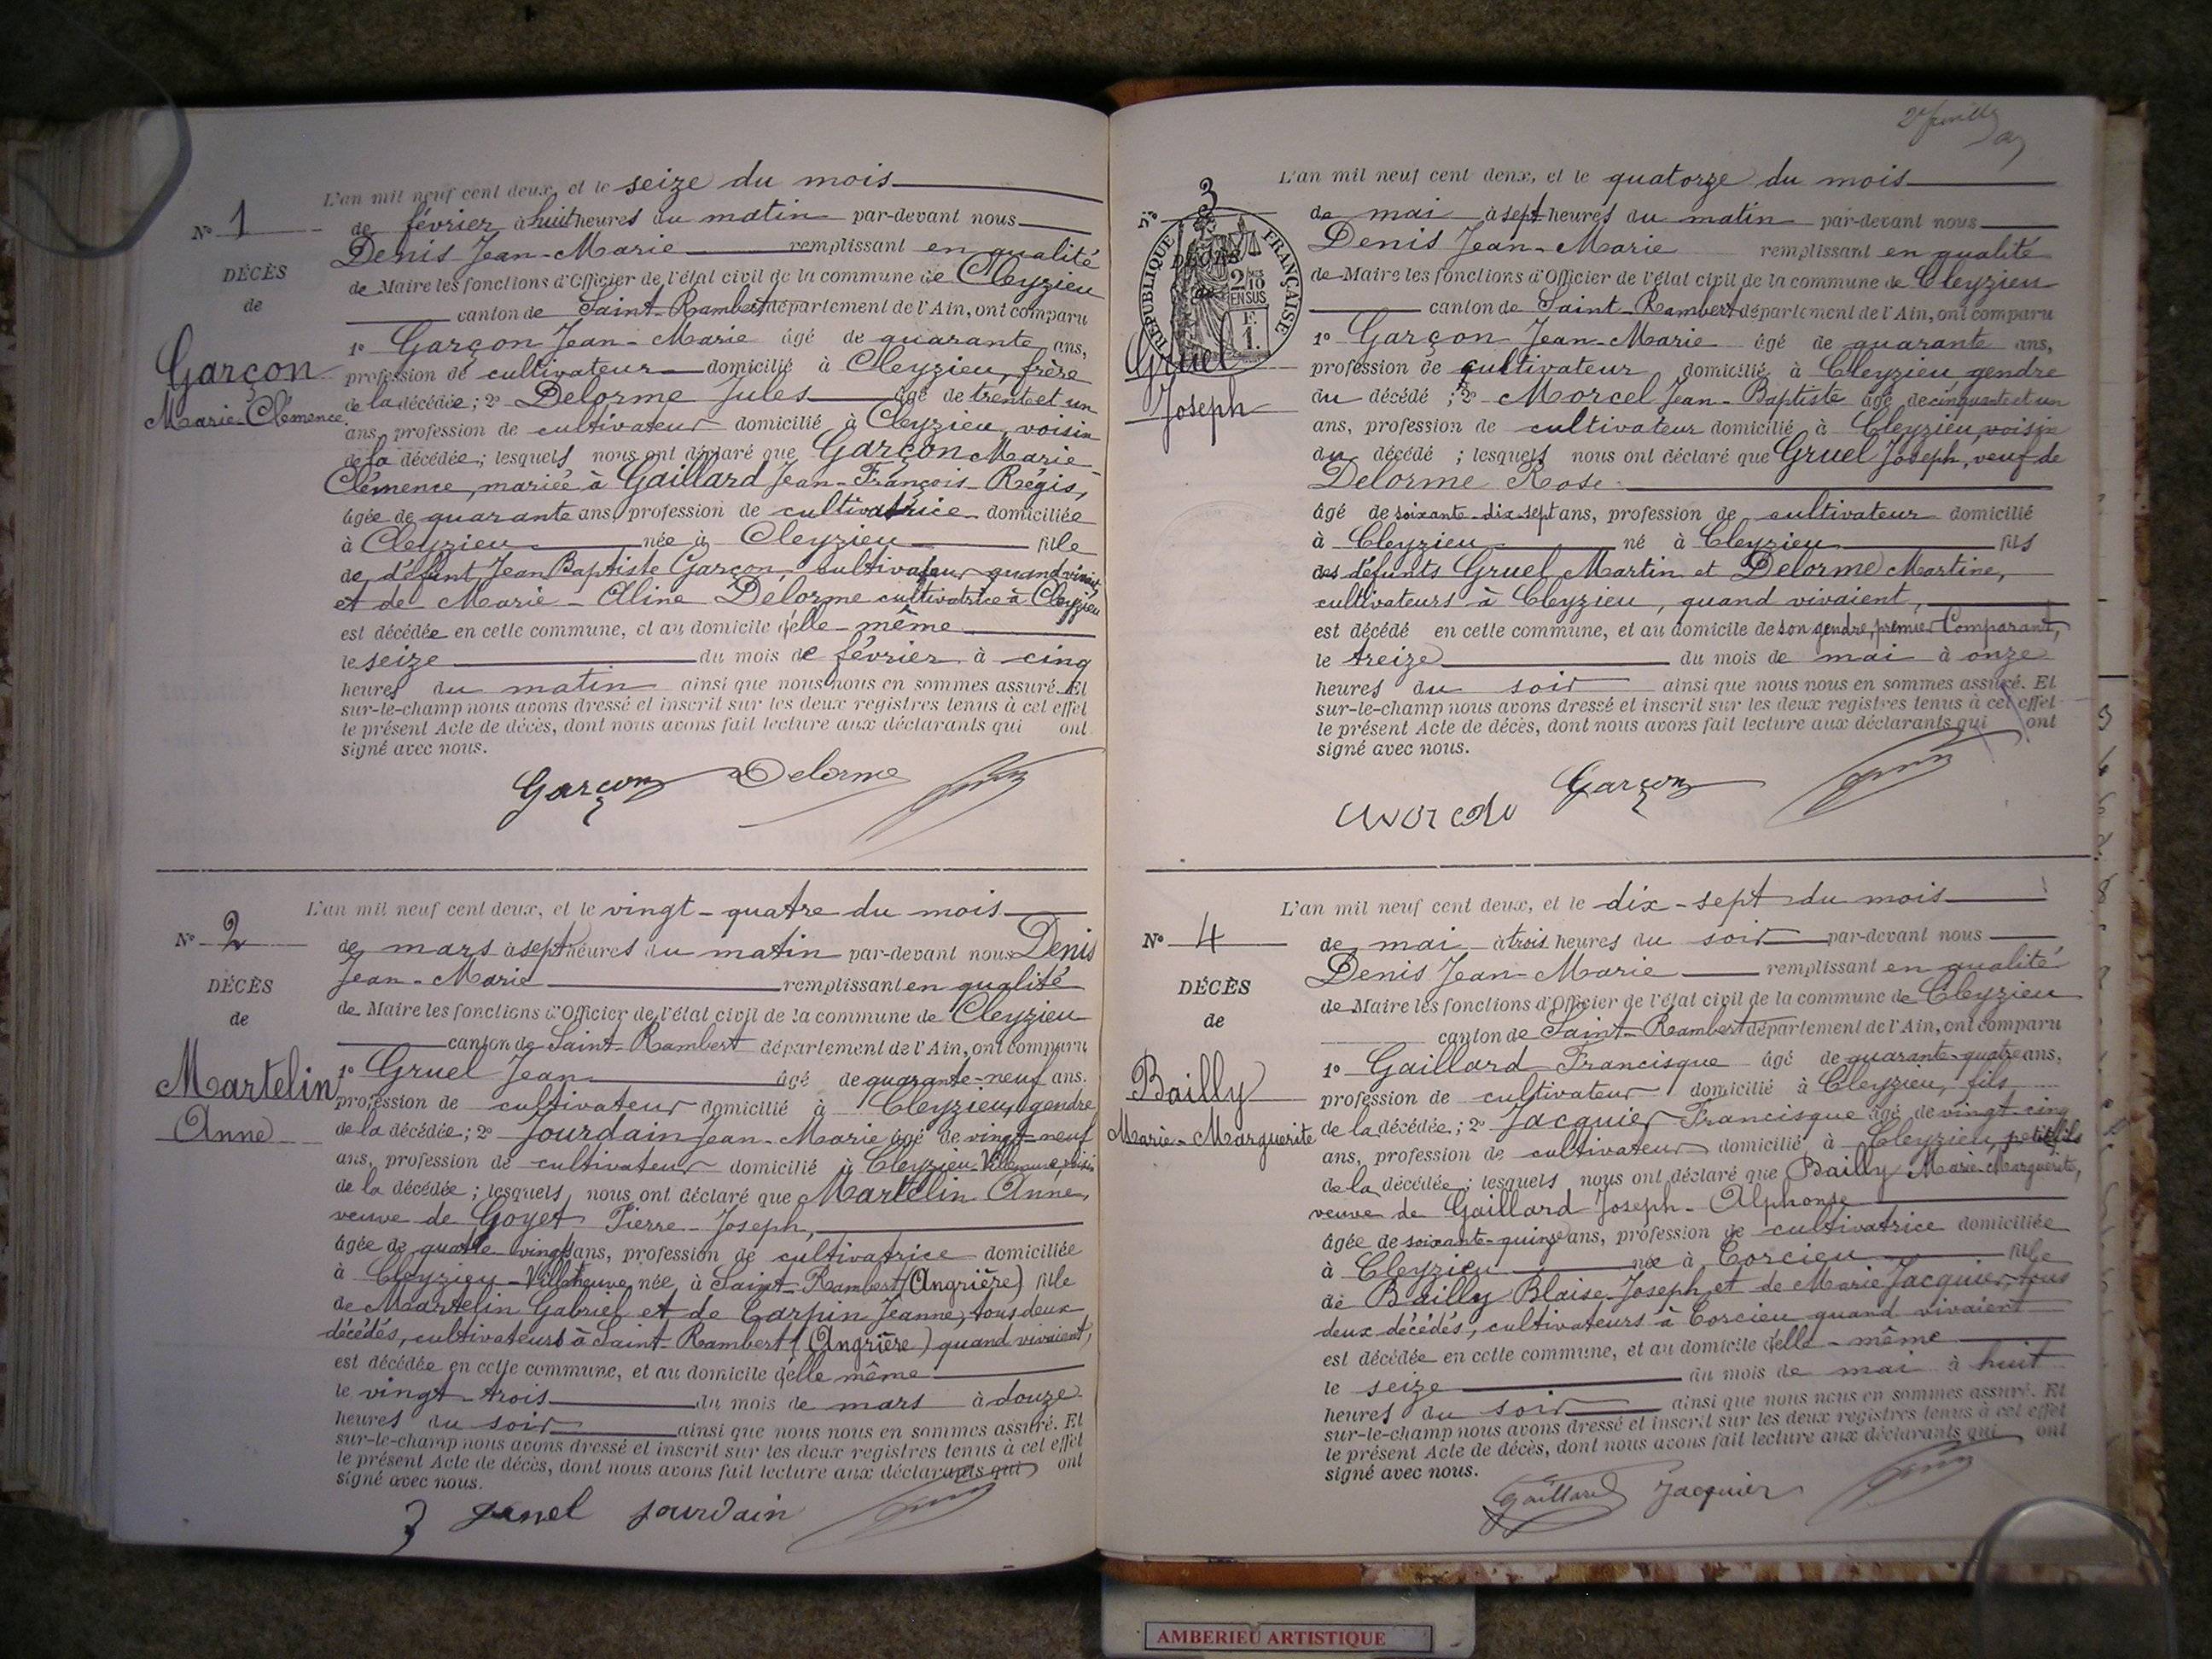 L'an mil neuf cent deux, et le seize du mois
N° 1
de février à huit heures du matin par-devant nous
Denis Jean-Marie remplissant en qualité
DÉCÈS
de Maire les fonctions d'Officier de l'état civil de la commune de Cleyzieu
de
canton de Saint-Rambert département de l'Ain, ont comparu
1° Garçon Jean-Marie âgé de quarante ans,
Garçon
profession de cultivateur domicilié à Cleyzieu, frère
Marie-Clémence
de la décédée; 2° Delorme Jules âgé de trente et un
ans, profession de cultivateur domicilié à Cleyzieu, voisin
de la décédée; lesquels nous ont déclaré que Garçon Marie-
Clémence, mariée à Gaillard Jean-François-Régis,
âgée de quarante ans, profession de cultivatrice domiciliée
à Cleyzieu née à Cleyzieu fille
de défunt Jean Baptiste Garçon, cultivateur quand vivait,
et de Marie-Aline Delorme cultivatrice à Cleyzieu
est décédée en cette commune, et au domicile d'elle-même
le seize du mois de février à cinq
heures du matin ainsi que nous nous en sommes assuré. Et
sur-le-champ nous avons dressé et inscrit sur les deux registres tenus à cet effet
le présent Acte de décès, dont nous avons fait lecture aux déclarants qui ont
signé avec nous.
Garçon Delorme
L'an mil neuf cent deux, et le vingt-quatre du mois
N° 2
de mars à sept heures du matin par-devant nous Denis
Jean-Marie remplissant en qualité
DÉCÈS
de Maire les fonctions d'Officier de l'état civil de la commune de Cleyzieu
de
canton de Saint-Rambert département de l'Ain, ont comparu
1° Gruel Jean âgé de quarante-neuf ans.
Martelin
profession de cultivateur domicilié à Cleyzieu, gendre
Anne
de la décédée; 2° Jourdain Jean-Marie âgé de vingt-neuf
ans, profession de cultivateur domicilié à Cleyzieu-Villeneuve, voisin
de la décédée; lesquels nous ont déclaré que Martelin Anne,
veuve de Goyet Pierre-Joseph,
âgée de quatre vingts ans, profession de cultivatrice domiciliée
à Cleyzieu-Villeneuve née à Saint-Rambert (Angrière) fille
de Martelin Gabriel et de Carpin Jeanne, tous deux
décédés, cultivateurs à Saint-Rambert (Angrière) quand vivaient,
est décédée en cette commune, et au domicile d'elle même
le vingt-trois du mois de mars à douze
heures du soir ainsi que nous nous en sommes assuré. Et
sur-le-champ nous avons dressé et inscrit sur les deux registres tenus à cet effet
le présent Acte de décès, dont nous avons fait lecture aux déclarants qui ont
signé avec nous.
jourdain
L'an mil neuf cent deux, et le quatorze du mois
N° 3
de mai à sept heures du matin par-devant nous
Denis Jean-Marie remplissant en qualité
RÉPUBLIQUE FRANÇAISE
2/10 EN SUS
F. 1.
DÉCÈS
de Maire les fonctions d'Officier de l'état civil de la commune de Cleyzieu
de
canton de Saint-Rambert département de l'Ain, ont comparu
1° Garçon Jean-Marie âgé de quarante ans,
Gruel
profession de cultivateur domicilié à Cleyzieu gendre
Joseph
du décédé; 2° Morcel Jean-Baptiste âgé de cinquante et un
ans, profession de cultivateur domicilié à Cleyzieu, voisin
du décédé; lesquels nous ont déclaré que Gruel Joseph, veuf de
Delorme Rose
âgé de soixante-dix-sept ans, profession de cultivateur domicilié
à Cleyzieu né à Cleyzieu fils
des défunts Gruel Martin et Delorme Martine,
cultivateurs à Cleyzieu, quand vivaient,
est décédé en cette commune, et au domicile de son gendre, premier Comparant,
le treize du mois de mai à onze
heures du soir ainsi que nous nous en sommes assuré. Et
sur-le-champ nous avons dressé et inscrit sur les deux registres tenus à cet effet
le présent Acte de décès, dont nous avons fait lecture aux déclarants qui ont
signé avec nous.
Garçon
L'an mil neuf cent deux, et le dix-sept du mois
N° 4
de mai à trois heures du soir par-devant nous
Denis Jean-Marie remplissant en qualité
DÉCÈS
de Maire les fonctions d'Officier de l'état civil de la commune de Cleyzieu
de
canton de Saint-Rambert département de l'Ain, ont comparu
1° Gaillard Francisque âgé de quarante-quatre ans.
Bailly
profession de cultivateur domicilié à Cleyzieu, fils
Marie-Marguerite
de la décédée; 2° Jacquier Francisque âgé de vingt-cinq
ans, profession de cultivateur domicilié à Cleyzieu, petit-fils
de la décédée; lesquels nous ont déclaré que Bailly Marie-Marguerite,
veuve de Gaillard Joseph-Alphonse
âgée de soixante-quinze ans, profession de cultivatrice domiciliée
à Cleyzieu née à Torcieu fille
de Bailly Blaise-Joseph et de Marie Jacquier, tous
deux décédés, cultivateurs à Torcieu quand vivaient
est décédée en cette commune, et au domicile d'elle-même
le seize du mois de mai à huit
heures du soir ainsi que nous nous en sommes assuré. Et
sur-le-champ nous avons dressé et inscrit sur les deux registres tenus à cet effet
le présent Acte de décès, dont nous avons fait lecture aux déclarants qui ont
signé avec nous.
Gaillard Jacquier
AMBERIEU ARTISTIQUE